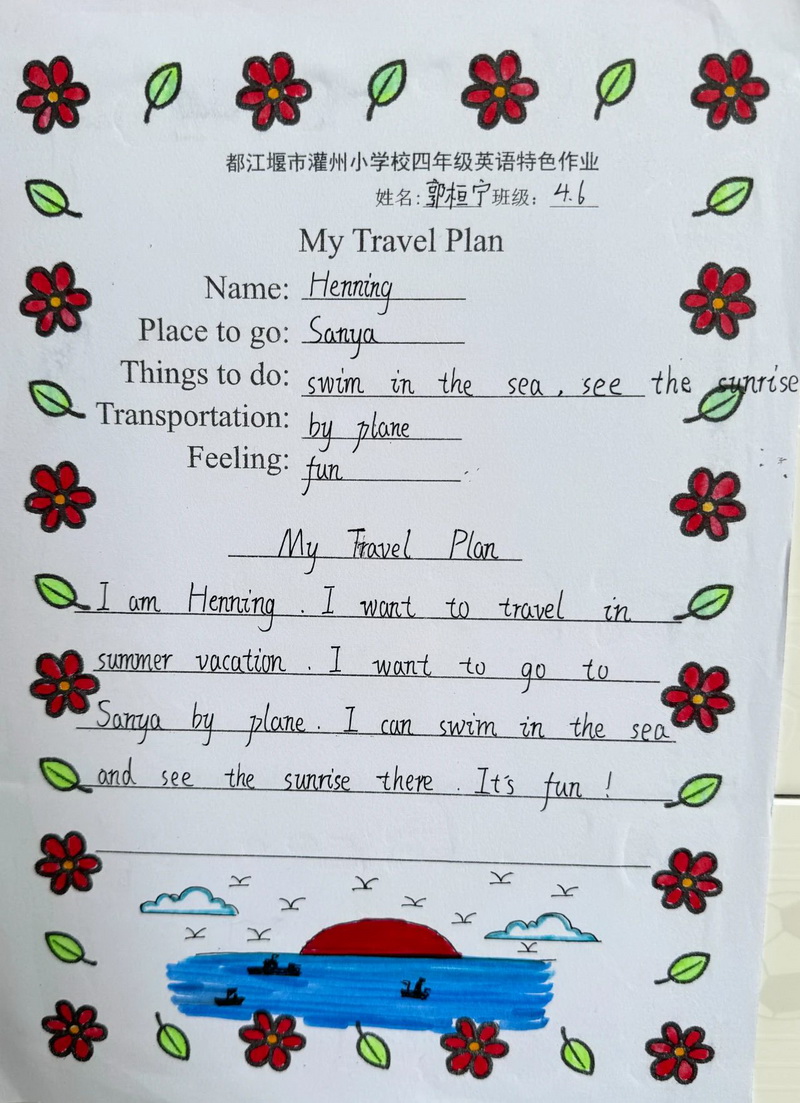 都江堰市灌州小学校四年级英语特色作业
姓名: 郭桓宁 班级: 4.6
My Travel Plan
Name: Henning
Place to go: Sanya
Things to do: swim in the sea, see the sunrise
Transportation: by plane
Feeling: fun
My Travel Plan
I am Henning. I want to travel in
summer vacation. I want to go to
Sanya by plane. I can swim in the sea
and see the sunrise there. It's fun!